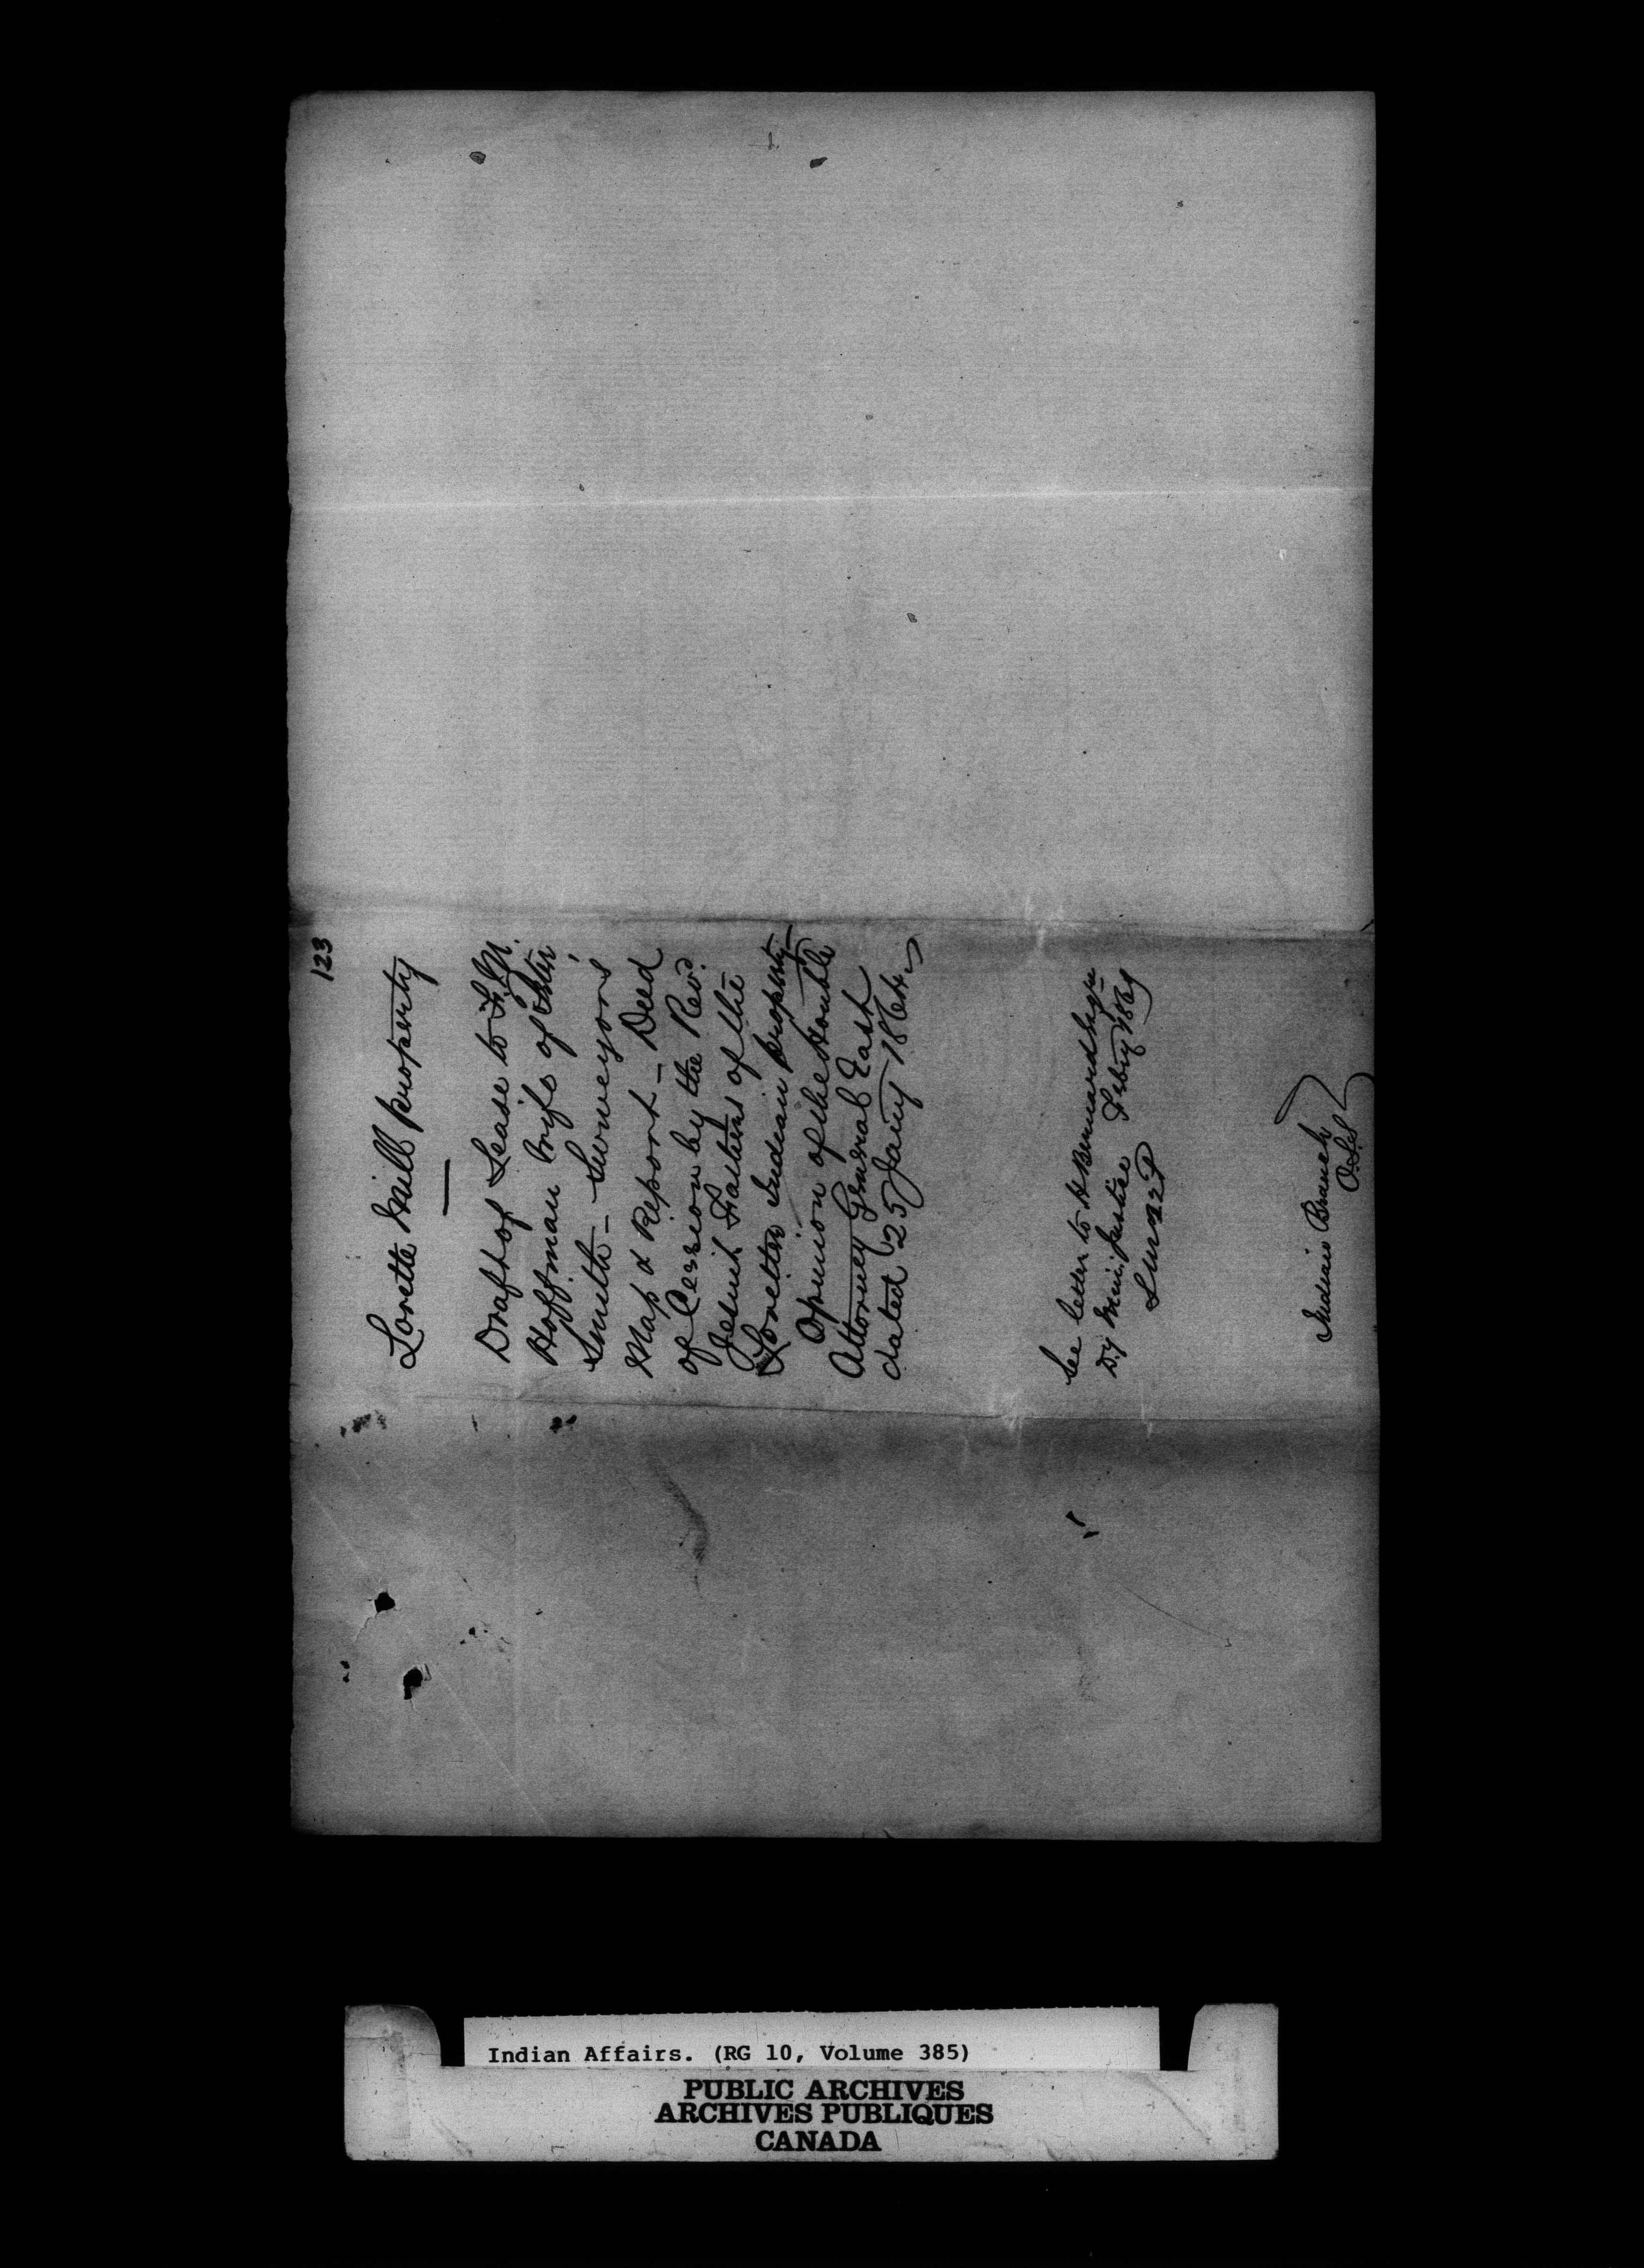 123
Lorette Mill property
Draft of Lease to
Hoffman wife of
Smith – Surveyor's
Map & Report – Deed
of Cession by the Revd.
Jesuit Fathers of the
Lorette Indian property –
Opinion of the Honble
Attorney General East
dated 25 Jany 1864.
See letter to H Bernard Esqre
Dy Min. Justice Feby 1869
Indian Branch
Indian Affairs. (RG 10, Volume 385)
PUBLIC ARCHIVES
ARCHIVES PUBLIQUES
CANADA